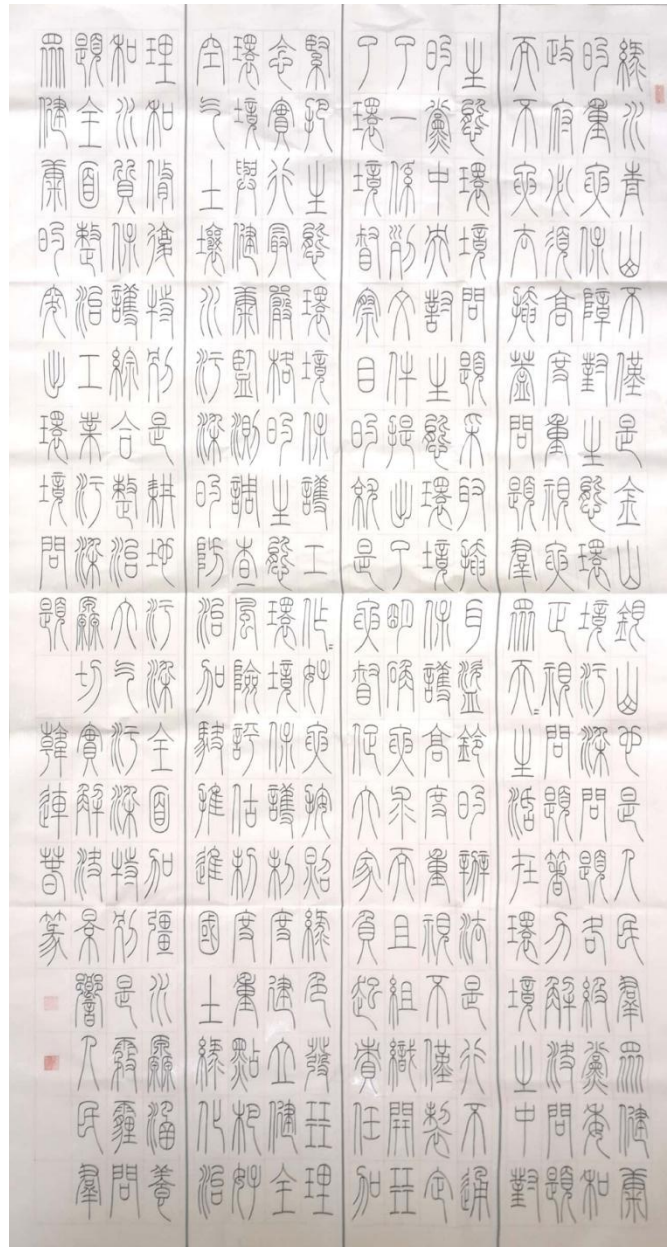 綠水青山不僅是金山銀山也是人民群眾健康
的重要保障對生態環境污染問題各級黨委和
政府必須高度重視要正視問題著力解決問題
而不要去掩蓋問題群眾天=生活在環境之中對
生態環境問題采取掩耳盜鈴的辦法是行不通
的黨中央對生態環境保護高度重視不僅製定
了一係列文件提出了明確要求而且組織開展
了環境督察目的就是要督促大家負起責任加
緊把生態環境保護工作=好要按照綠色發展理
念實行最嚴格的生態環境保護制度建立健全
環境與健康監測調查風險評估制度重點抓好
空氣土壤水污染的防治加快推進國土綠化治
理和修復特別是耕地污染全面加強水源涵養
和水質保護綜合整治大氣污染特別是霧霾問
題全面整治工業污染源切實解決影響人民群
眾健康的突出環境問題 韓連春篆